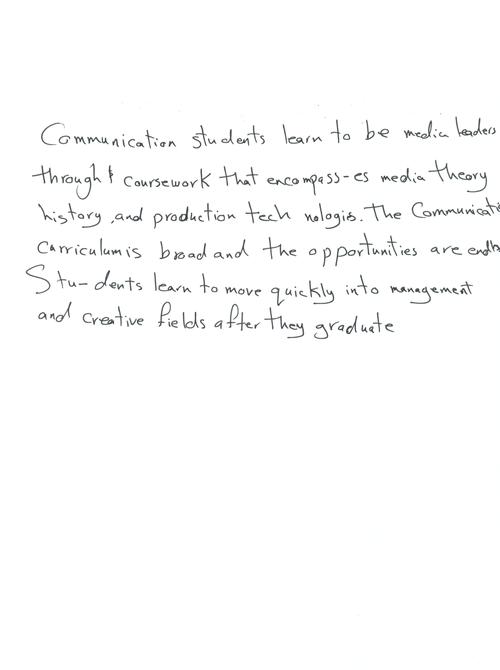 Communication students learn to be media leaders
through coursework that encompass-es media theory
history ,and production tech nologis. The Communicati
Carriculum is broad and the opportunities are endl
Stu- dents learn to move quickly into management
and creative fields after they graduate